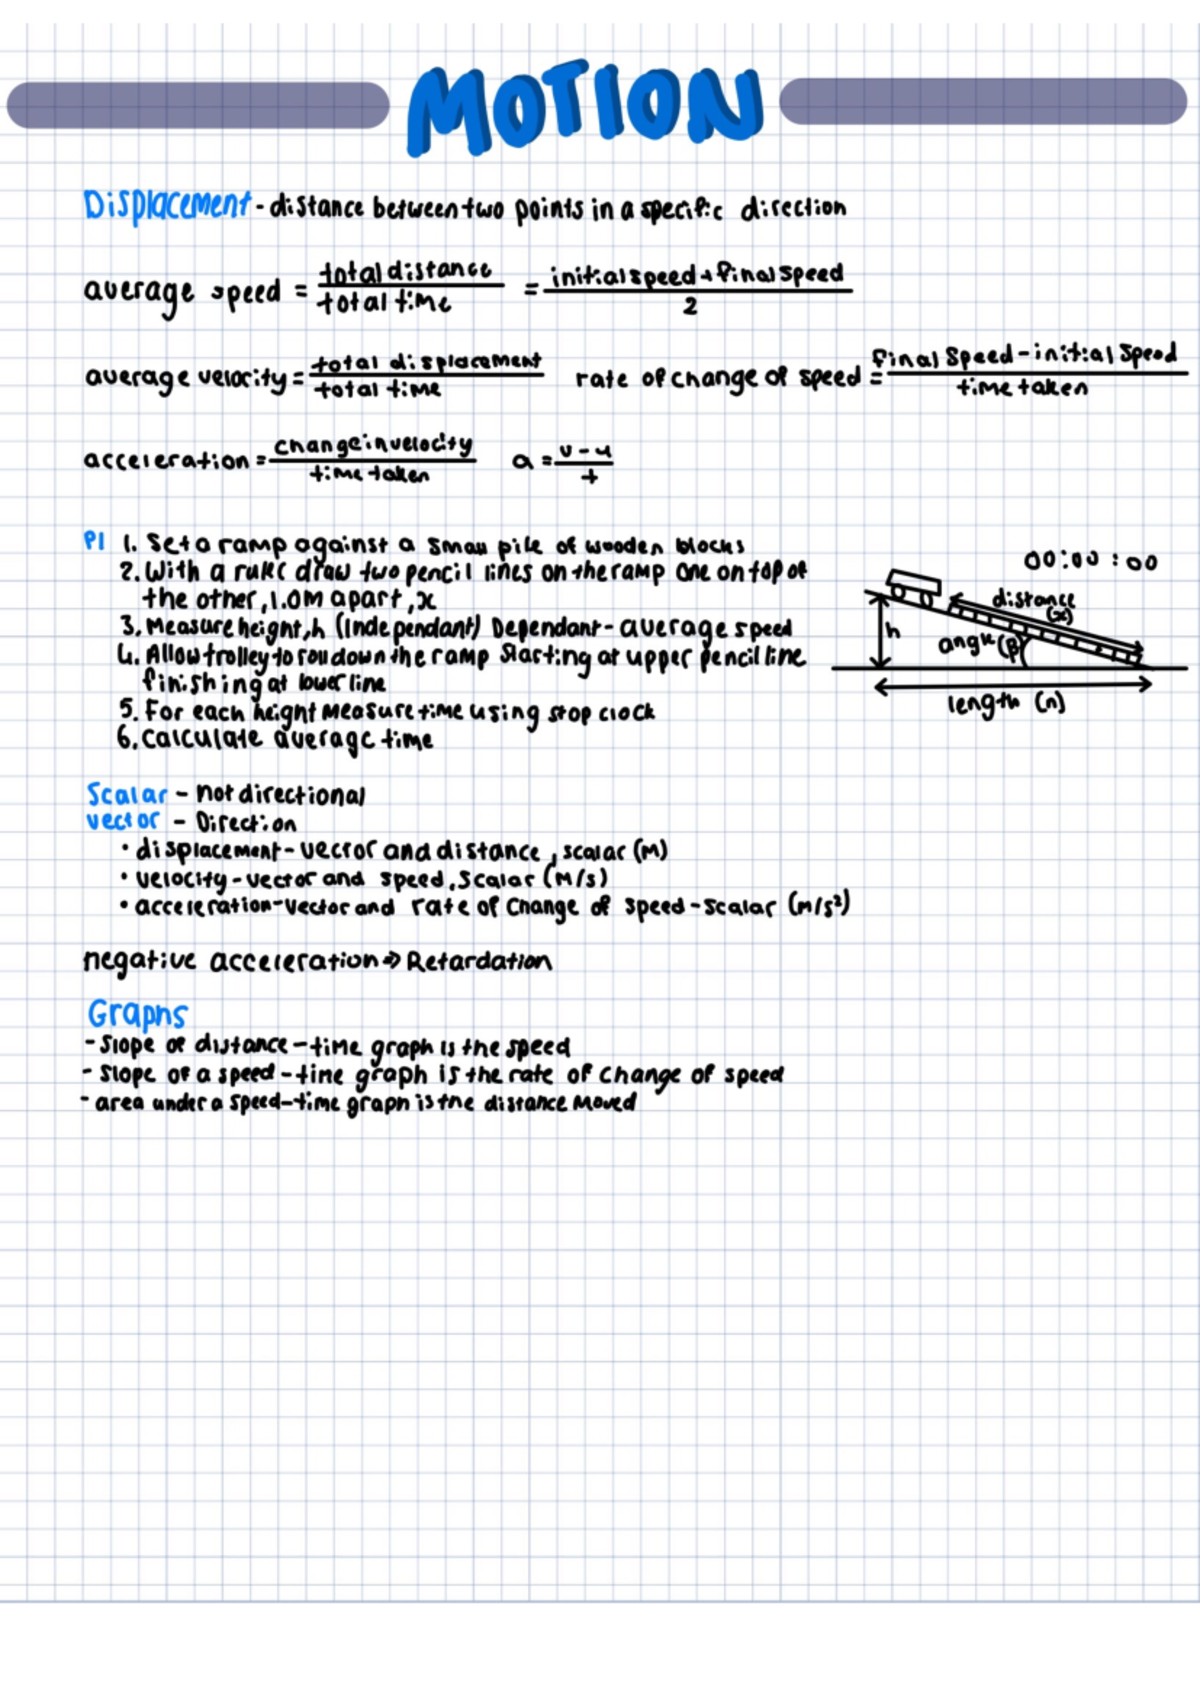 MOTION
Displacement - distance between two points in a specific direction
average speed = total distance / total time = initial speed + final speed / 2
average velocity = total displacement / total time rate of change of speed = final speed - initial speed / time taken
acceleration = change in velocity / time taken a = v - u / t
P1 1. Set a ramp against a small pile of wooden blocks
2. With a ruler draw two pencil lines on the ramp one on top of
the other, 1.0m apart, x
3. Measure height, h (Independant) Dependant - average speed
4. Allow trolley to roll down the ramp starting at upper pencil line
finishing at lower line
5. For each height measure time using stop clock
6. Calculate average time
00:00:00
distance
(x)
h
angle (β)
length (n)
Scalar - not directional
vector - Direction
• displacement - vector and distance, scalar (M)
• velocity - vector and speed, scalar (M/s)
• acceleration - vector and rate of change of speed - scalar (m/s²)
negative acceleration => Retardation
Graphs
- slope of distance - time graph is the speed
- slope of a speed - time graph is the rate of change of speed
- area under a speed - time graph is the distance moved